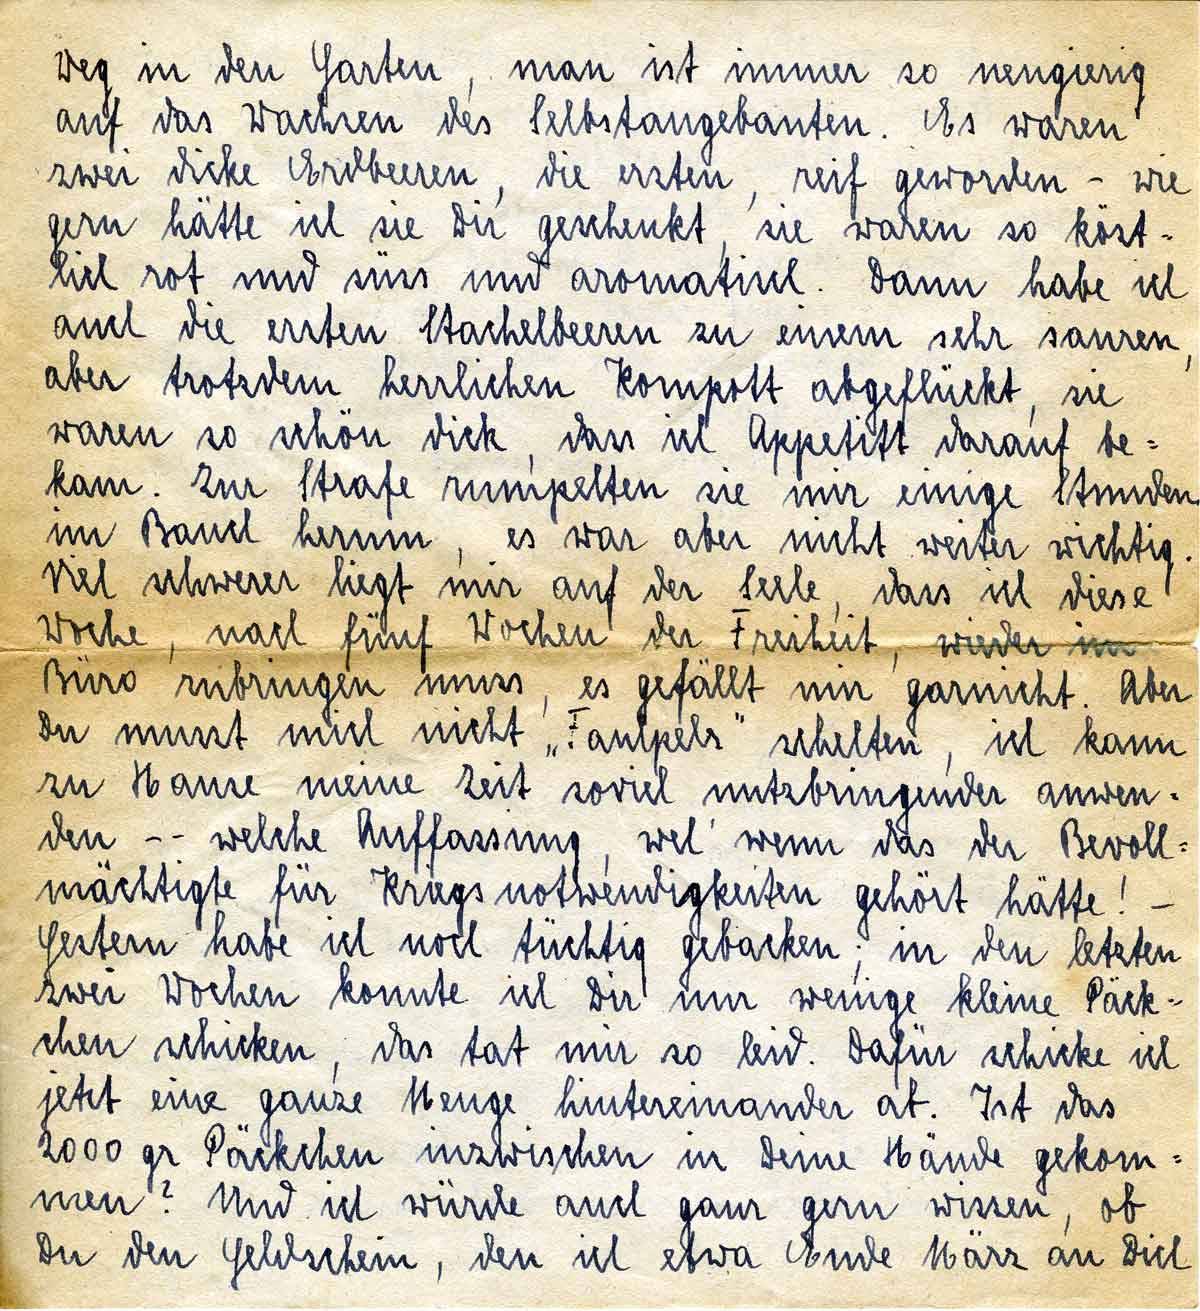 Weg in den Garten, man ist immer so neugierig
auf das Wachsen des Selbstangebauten. Es waren
zwei dicke Erdbeeren, die ersten, reif geworden - wie
gern hätte ich sie Dir geschenkt, sie waren so köst-
lich rot und süss und aromatisch. Dann habe ich
auch die ersten Stachelbeeren zu einem sehr sauren,
aber trotzdem herrlichen Kompott abgeflückt, sie
waren so schön dick, dass ich Appetitt darauf be-
kam. Zur Strafe rumpelten sie mir einige Stunden
im Bauch herum, es war aber nicht weiter wichtig.
Viel schwerer liegt mir auf der Seele, dass ich diese
Woche, nach fünf Wochen der Freiheit, wieder im
Büro zubringen muss, es gefällt mir garnicht. Aber
Du musst mich nicht „Faulpelz" schelten, ich kann
zu Hause meine Zeit soviel nutzbringender anwen-
den -- welche Auffassung, weh' wenn das der Bevoll-
mächtigte für Kriegsnotwendigkeiten gehört hätte! -
Gestern habe ich noch tüchtig gebacken; in den letzten
zwei Wochen konnte ich Dir nur wenige kleine Päck-
chen schicken, das tat mir so leid. Dafür schicke ich
jetzt eine ganze Menge hintereinander ab. Ist das
2000 gr Päckchen inzwischen in Deine Hände gekom-
men? Und ich würde auch ganz gern wissen, ob
Du den Geldschein, den ich etwa Ende März an Dich